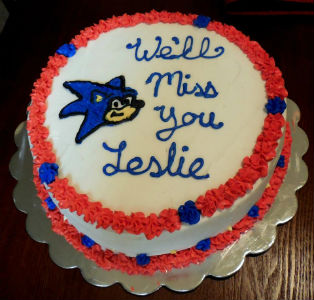 We'll
Miss
You
Leslie